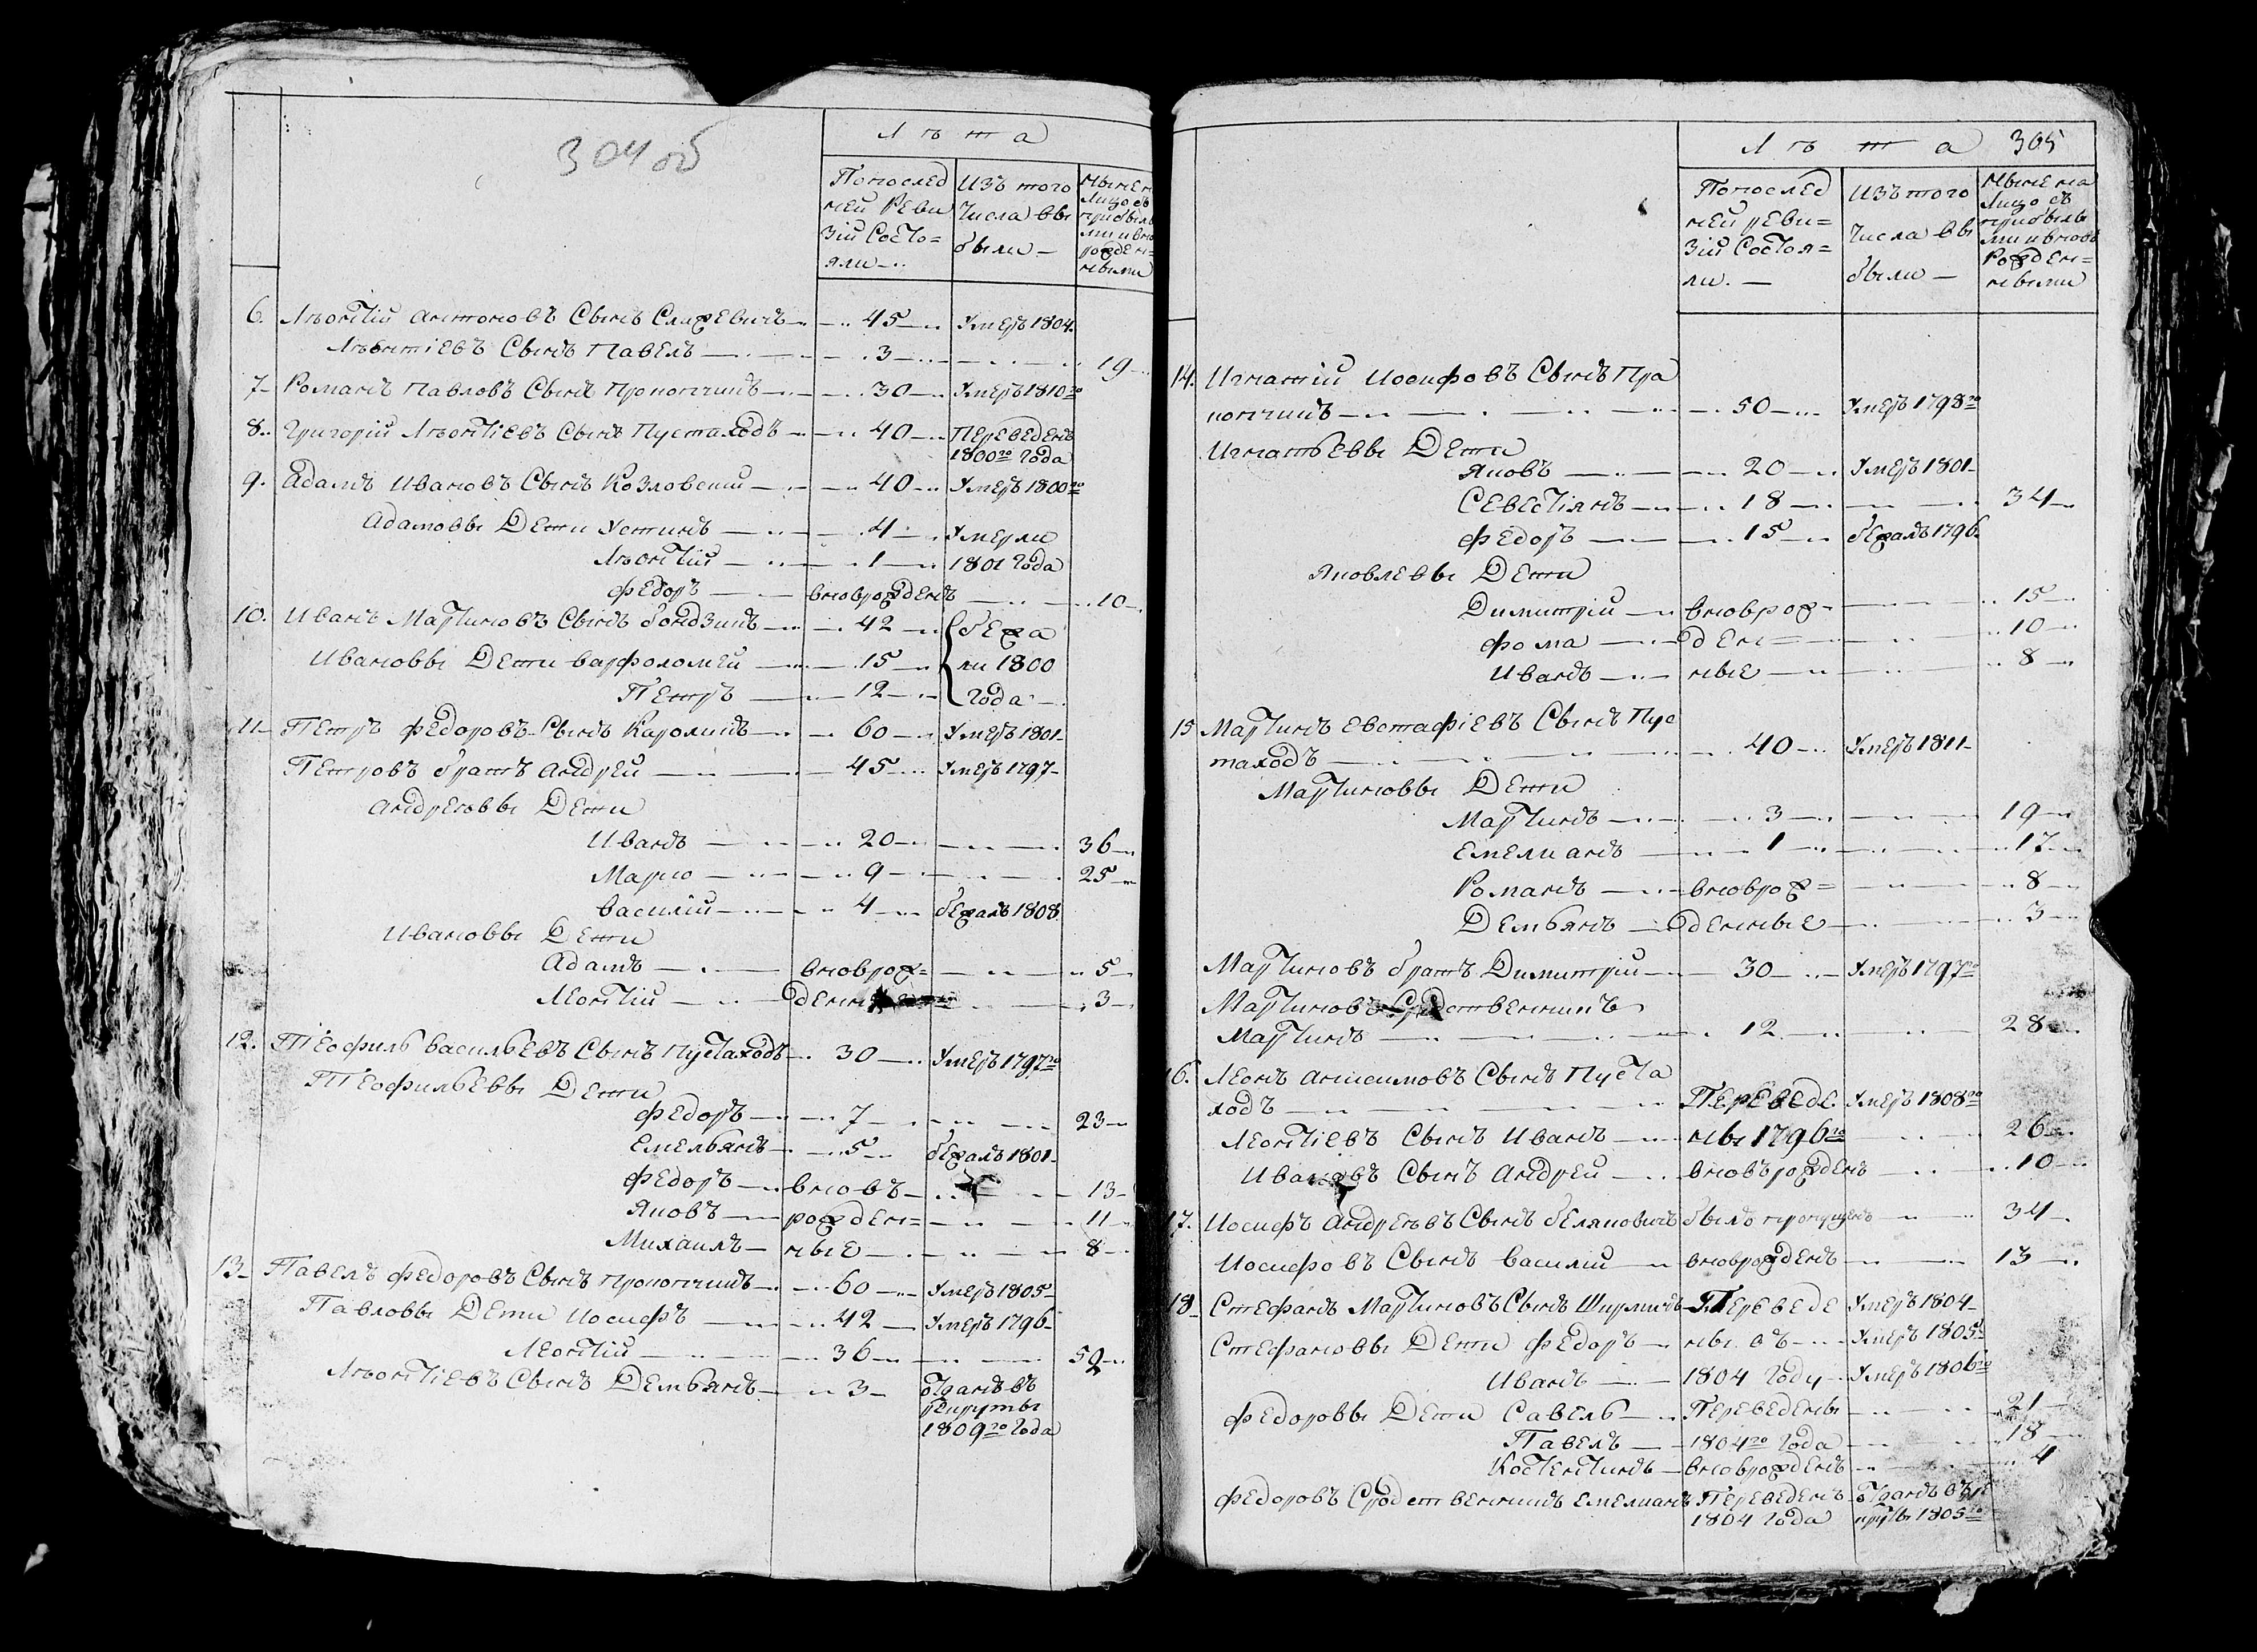 304 об
Лѣта
Попослед ней Реви зіи Состо= яли
Изъ того Числа вы были
Ныне на Лицо съ прибылы ми и вно рожден= ными
6. Лѣонтій Антоновъ Сынъ Слижевичъ 45 Умеръ 1804.
Лѣонтіевъ Сынъ Павелъ 3 19
7 Романъ Павловъ Сынъ Прокопчикъ 30 Умеръ 1810го
8. Григорій Лѣонтіевъ Сынъ Пустаходъ 40 Переведенъ
1800го Года
9. Адамъ Ивановъ Сынъ Козловский 40 Умеръ 1800го
Адамовы Дети Устинъ 4 Умерли
Лѣонтій 1 1801 Года
Федоръ вноврожденъ 10
10. Иванъ Мартиновъ Сынъ бондзикъ 42 бежа
Ивановы Дети варфоломей 15 ли 1800
Петръ 12 Года
11 Петръ Федоровъ Сынъ Кароликъ 60 Умеръ 1801
Петровъ братъ Андрей 45 Умеръ 1797
Андреовы Дети
Иванъ 20 36
Марко 9 25
василій 4 бежалъ 1808
Ивановы Дети
Адамъ вноврож= 5
Леонтій денные 3
12. Теофиль васильевъ Сынъ Пустаходъ 30 Умеръ 1797го
Теофильевы Дети
Федоръ 7 23
Емельянъ 5 бежалъ 1801
Федоръ вновъ 13
Яковъ рожден= 11
Михаилъ ные 8
13 Павелъ Федоровъ Сынъ Прокопчикъ 60 Умеръ 1805
Павловы Дети Иосифъ 42 Умеръ 1796
Леонтій 36 52
Лѣонтіевъ Сынъ Демьянъ 3 отданъ въ
рекруты
1809го Года
Лѣта 305
Попослед ней реви= зіи Состоя= ли.
Изъ того Числа вы были
Ныне на Лицо съ прибылы ми и вновь Рожден= ными
14. Игнатій Иосифовъ Сынъ Про
копчикъ 50 Умеръ 1798го
Игнатьевы Дети
Яковъ 20 Умеръ 1801
Севестіянъ 18 34
Федоръ 15 бежалъ 1796
Яковлевы Дети
Димитрій вноврож= 15
Фома ден= 10
Иванъ ные 8
15 Мартинъ Евстафіевъ Сынъ Пус
таходъ 40 Умеръ 1811
Мартиновы Дети
Мартинъ 3 19
Емелианъ 1 17
Романъ вноврож= 8
Демьянъ денные 3
Мартиновъ братъ Димитрій 30 Умеръ 1797го
Мартиновъ Сродственникъ
Мартинъ 12 28
16. Леонъ Анисимовъ Сынъ Пуста
ходъ Переведе Умеръ 1808го
Леонтіевъ Сынъ Иванъ ны 1796го 26
Ивановъ Сынъ Андрей вновърожденъ 10
17. Иосифъ Андреевъ Сынъ беляновичъ былъ пропущенъ 34
Иосифовъ Сынъ василій вноврожденъ 13
18 Стефанъ Мартиновъ Сынъ Ширмикъ Переведе Умеръ 1804
Стефановы Дети Федоръ ны въ Умеръ 1805
Иванъ 1804 Году Умеръ 1806го
Федоровы Дети Савель Переведены 21
Павелъ 1804го Года 18
Костентинъ вноврожденъ 4
Федоровъ Сродственникъ Емелианъ Переведенъ отданъ въ ре
1804 Года круты 1805го